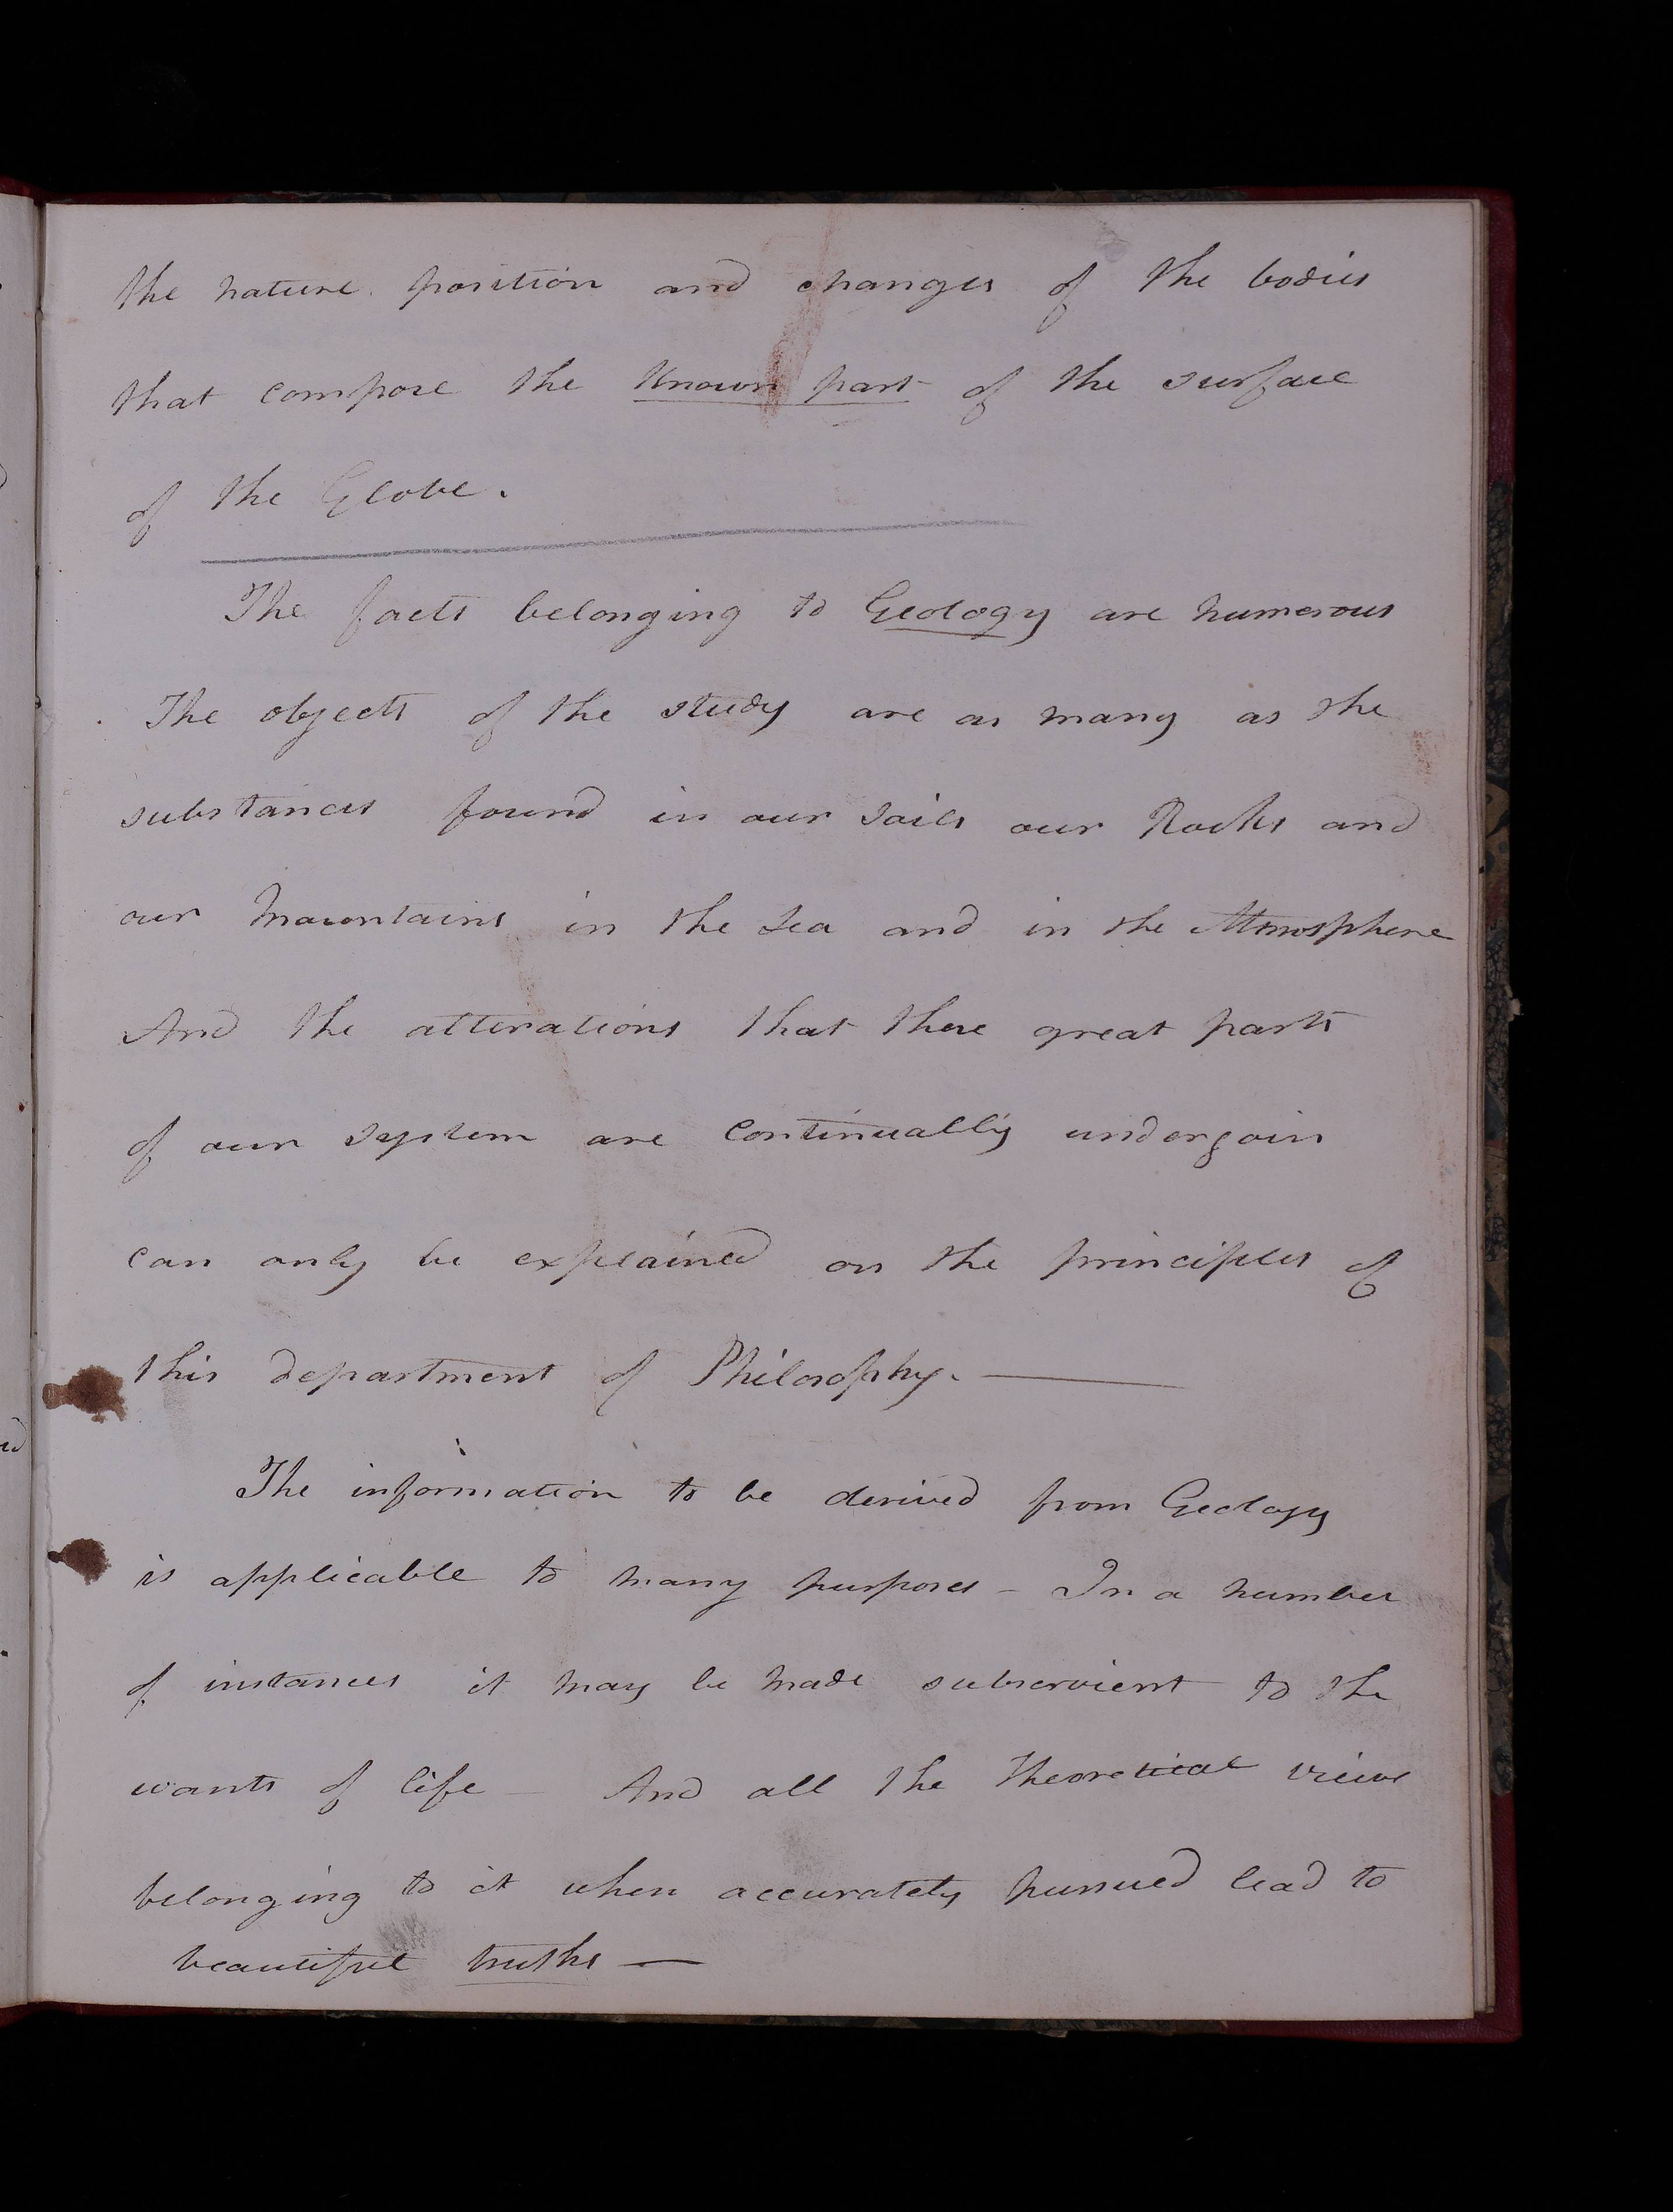 the nature position and changes of the bodies
that compose the known part of the surface
of the Globe.
The facts belonging to Geology are numerous
The objects of the study are as many as the
substances found in our soils our Rocks and
our Mountains in the Sea and in the Atmosphere
And the alterations that these great parts
of our system are continually undergoin
can only be explained on the principles of
this department of Philosophy. —
The information to be derived from Geology
is applicable to many purposes - In a number
of instances it may be made subservient to the
wants of life - And all the theoretical views
belonging to it when accurately pursued lead to
beautiful truths —